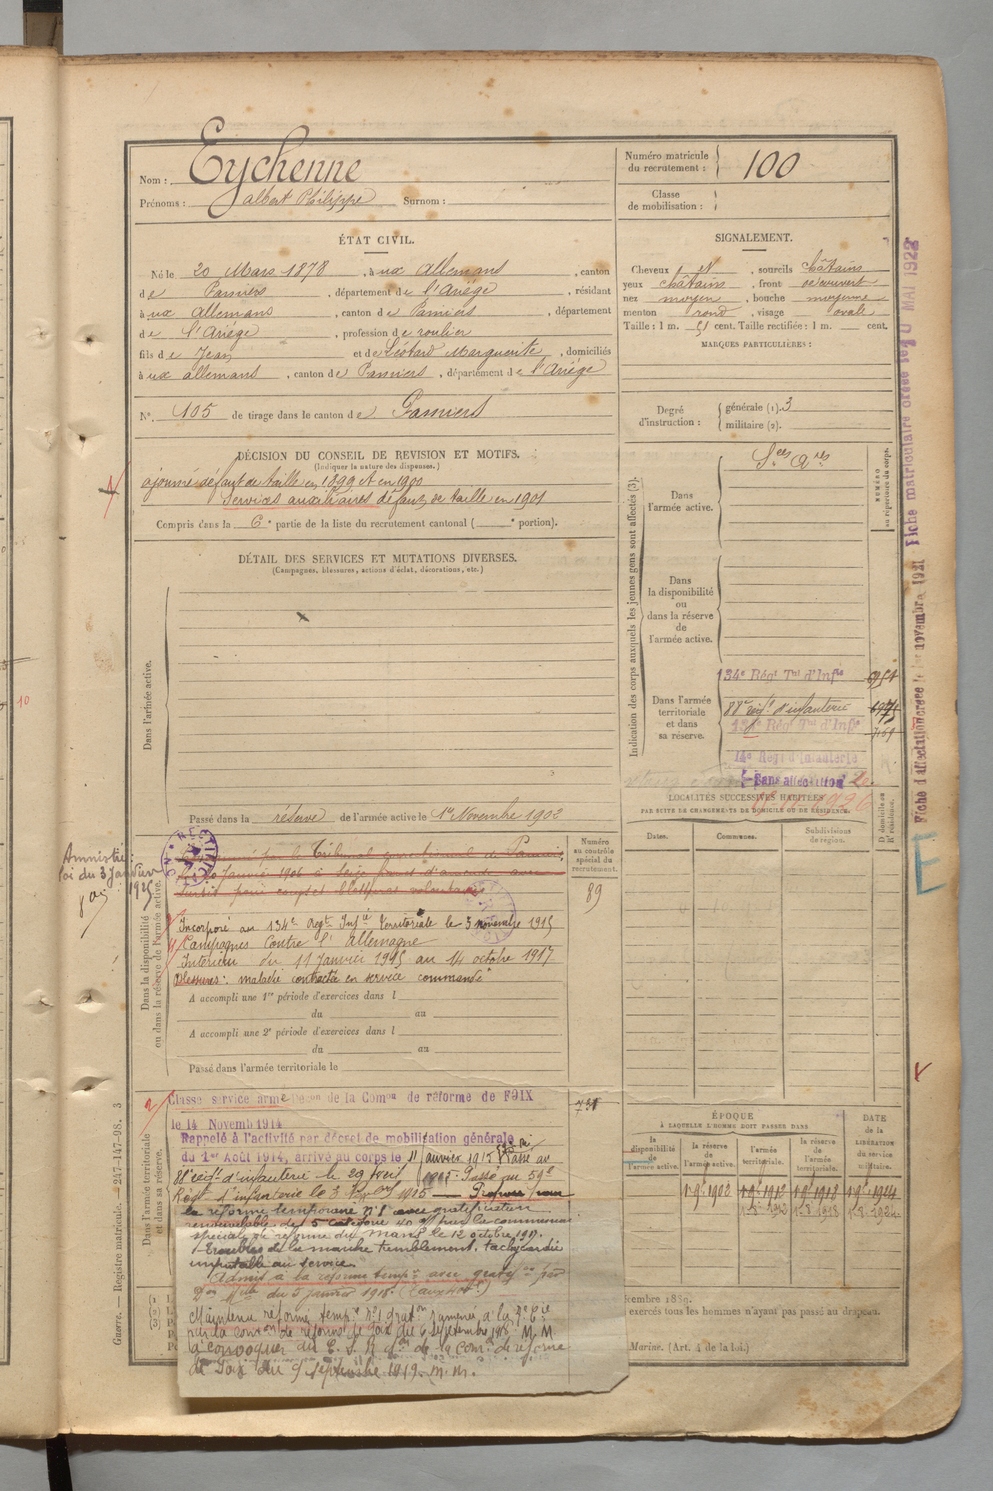 Nom : Eychenne
Prénoms : Albert Philippe Surnom :
Numéro matricule du recrutement : 100
Classe de mobilisation :
ÉTAT CIVIL.
Né le 20 Mars 1878, à ux Allemans, canton
de Pamiers, département de l'Ariége, résidant
à ux Allemans, canton de Pamiers, département
de l'Ariége, profession de roulier
fils de Jean et de Léotard Marguerite, domiciliés
à ux allemans, canton de Pamiers, département de l'Ariége
N° 105 de tirage dans le canton de Pamiers
SIGNALEMENT.
Cheveux et, sourcils châtains
yeux châtains, front découvert
nez moyen, bouche moyenne
menton rond, visage ovale
Taille : 1 m. 51 cent. Taille rectifiée : 1 m. cent.
MARQUES PARTICULIÈRES :
Degré d'instruction : générale (1). 3
militaire (2).
DÉCISION DU CONSEIL DE REVISION ET MOTIFS.
(Indiquer la nature des dispenses.)
ajourné défaut de taille en 1899 et en 1900
Services auxiliaires défaut de taille en 1901
Compris dans la 6e partie de la liste du recrutement cantonal ( e portion).
DÉTAIL DES SERVICES ET MUTATIONS DIVERSES.
(Campagnes, blessures, actions d'éclat, décorations, etc.)
Dans l'armée active.
Passé dans la réserve de l'armée active le 1er Novembre 1902
Indication des corps auxquels les jeunes gens sont affectés (3).
NUMÉRO au répertoire du corps.
Dans l'armée active.
Dans la disponibilité ou dans la réserve de l'armée active.
Dans l'armée territoriale et dans sa réserve.
134e Régt Tal d'Infie
88e régt d'infanterie
134e Régt Tal d'Infie
14e Régt d'Infanterie
Sans affectation
LOCALITÉS SUCCESSIVES HABITÉES
PAR SUITE DE CHANGEMENTS DE DOMICILE OU DE RÉSIDENCE.
Dates.
Communes.
Subdivisions de région.
D. domicile ou R. résidence.
Fiche matriculaire créée le 10 MAI 1922
Fiche d'affectation créée le 1er novembre 1921
E
Amnistie :
loi du 3 Janvier
1925
Dans la disponibilité ou dans la réserve de l'armée active.
Numéro au contrôle spécial du recrutement.
89
Condamné par le Tribunal correctionnel de Pamiers
Janvier 1906 à Seize francs d'amende avec
Sursis pour coups et blessures volontaires
Incorporé au 134e Régt Infie Territoriale le 5 novembre 1915
Campagnes Contre l'Allemagne
Intérieur du 11 Janvier 1915 au 14 octobre 1917
Blessures : maladie contractée en service commandé
A accompli une 1re période d'exercices dans l
du au
A accompli une 2e période d'exercices dans l
du au
Passé dans l'armée territoriale le
Dans l'armée territoriale et dans sa réserve.
Classé service armé Décon de la Comon de réforme de FOIX
le 14 Novemb 1914
Rappelé à l'activité par décret de mobilisation générale
du 1er Août 1914, arrivé au corps le 11 Janvier 1915 Passé au
88e régt d'infanterie le 29 Avril 1915. Passé au 59e
Régt d'infanterie le 1915 — Proposé pour
la réforme temporaire n°1 avec gratification
renouvelable de 5e catégorie 40 % par la commission
spéciale de réforme du Mans le 12 octobre 1917.
Troubles de la marche tremblement, tachycardie
imputable au service
Admis à la réforme tempre avec gratifon par
du 5 janvier 1918.
Maintenu réformé tempre n°1 graton ramenée à la
par la comon de réforme de Foix du 6 Septembre 1918. M.M.
à convoquer au C. S. R don de la Comon de réforme
de Foix du 9 Septembre 1919. M.M.
ÉPOQUE
À LAQUELLE L'HOMME DOIT PASSER DANS
DATE de la LIBÉRATION du service militaire.
la disponibilité de l'armée active.
la réserve de l'armée active.
l'armée territoriale.
la réserve de l'armée territoriale.
1.9bre 1902
1.9bre 1912
1.9bre 1918
1.9bre 1924
1.8.1912
1.8.1918
1.8.1924
décembre 1889.
exercés tous les hommes n'ayant pas passé au drapeau.
Marine. (Art. 4 de la loi.)
Guerre. — Registre matricule. — 247-147-98. 3